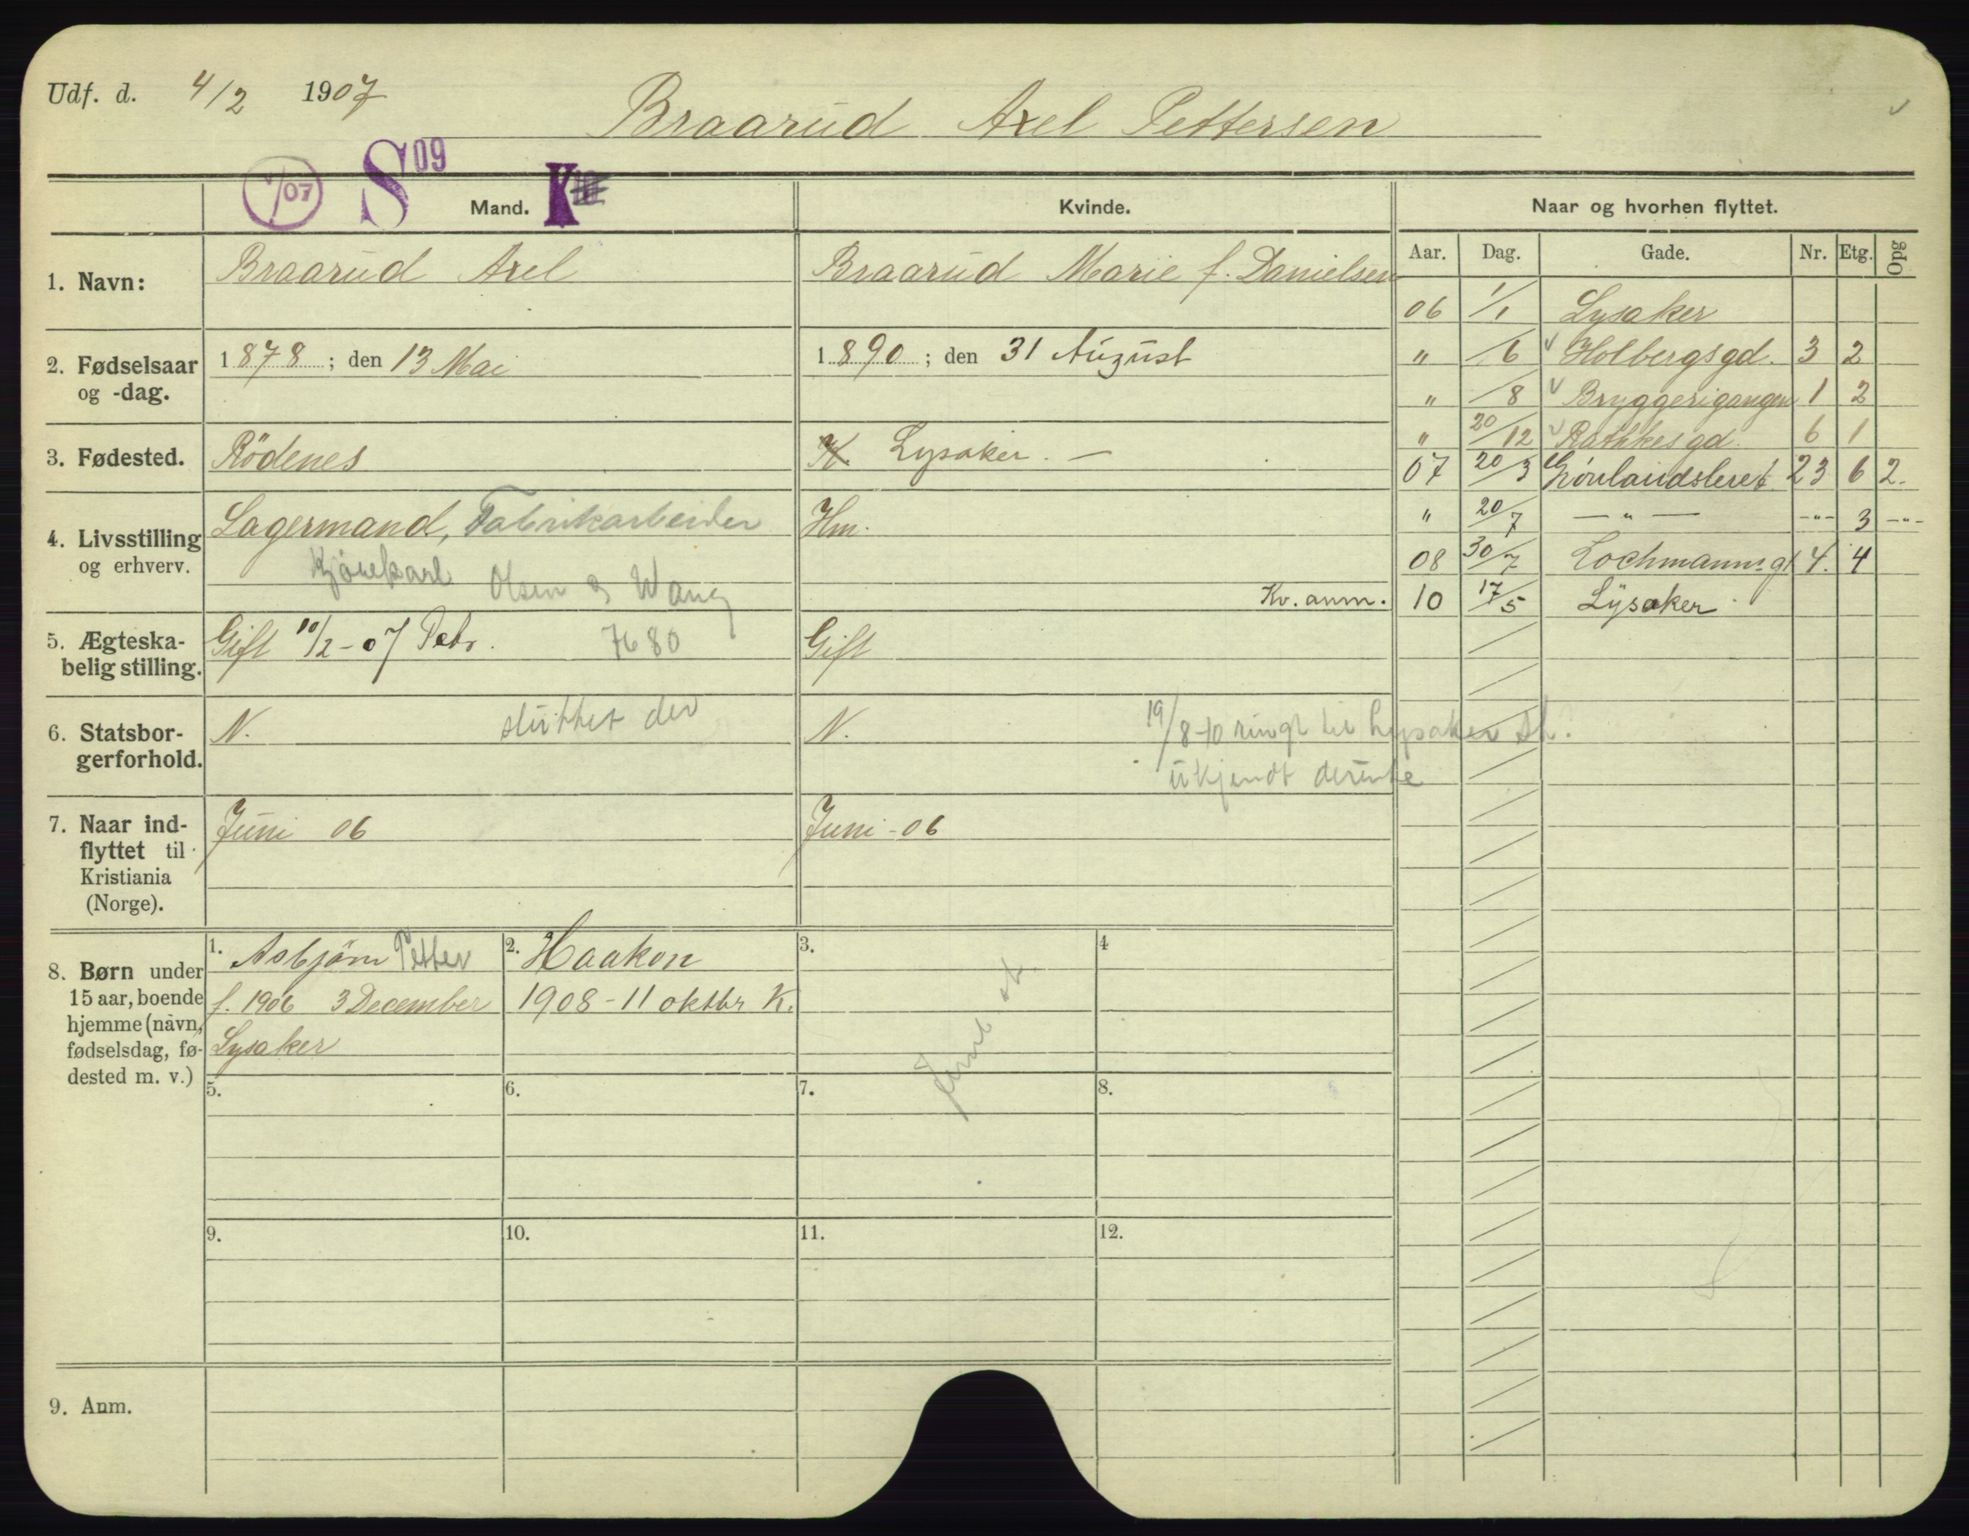 Udf. d. 4/2 1907
Braarud Axel Pettersen
/07 S 09 K 10
Mand. Kvinde. Naar og hvorhen flyttet.
Aar. Dag. Gade. Nr. Etg. Opg
1. Navn: Braarud Axel Braarud Marie f. Danielsen
06 1/1 Lysaker
2. Fødselsaar og -dag. 1878; den 13 Mai 1890; den 31 August
" /6 Holbergsgd. 3 2
" /8 Bryggerigangen 1 2
" 20/12 Rathkesgd. 6 1
3. Fødested. Rödenes K Lysaker. —
07 20/3 Grönlandsleret 23 6 2.
4. Livsstilling og erhverv. Lagermand, Fabrikarbeider Hm.
" 20/7 — " — -"- 3 -"-
Kjörekarl Olsen & Wang
08 30/7 Lochmannsgt 4. 4
Kv. anm. 10 17/5 Lysaker
5. Ægteska-
belig stilling. Gift 10/2-07 Petr. 7680 Gift
6. Statsbor-
gerforhold. N. sluttet der N. 19/8-10 ringt til Lysaker
ukjendt derute
7. Naar ind-
flyttet til
Kristiania
(Norge).
Juni 06 Juni - 06
8. Børn under
15 aar, boende
hjemme (navn,
fødselsdag, fø-
dested m. v.)
1. Asbjörn Petter 2. Haakon 3. 4
f. 1906 3 December 1908 - 11 oktbr K.
Lysaker
5. 6. 7. 8.
9. 10. 11. 12.
9. Anm.